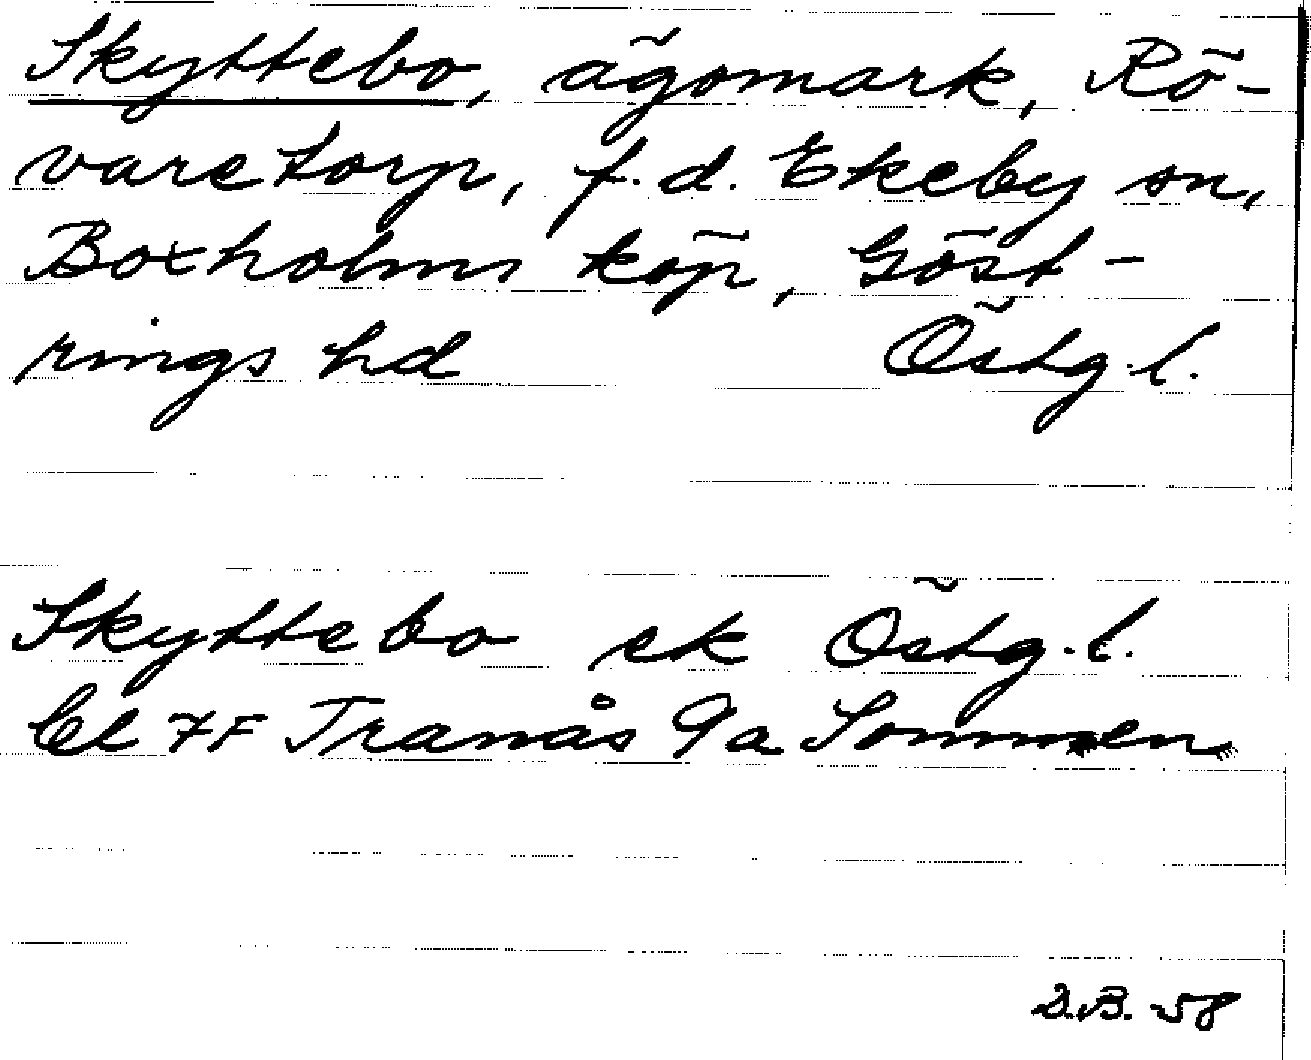 Skyttebo, ägomark, Rö-
varetorp, f.d. Ekeby sn,
Boxholms köp, Göst-
rings hd Östg.l.
Skyttebo ek Östg.l.
bl 7F Tranås 9a Sommen
D.B. -58